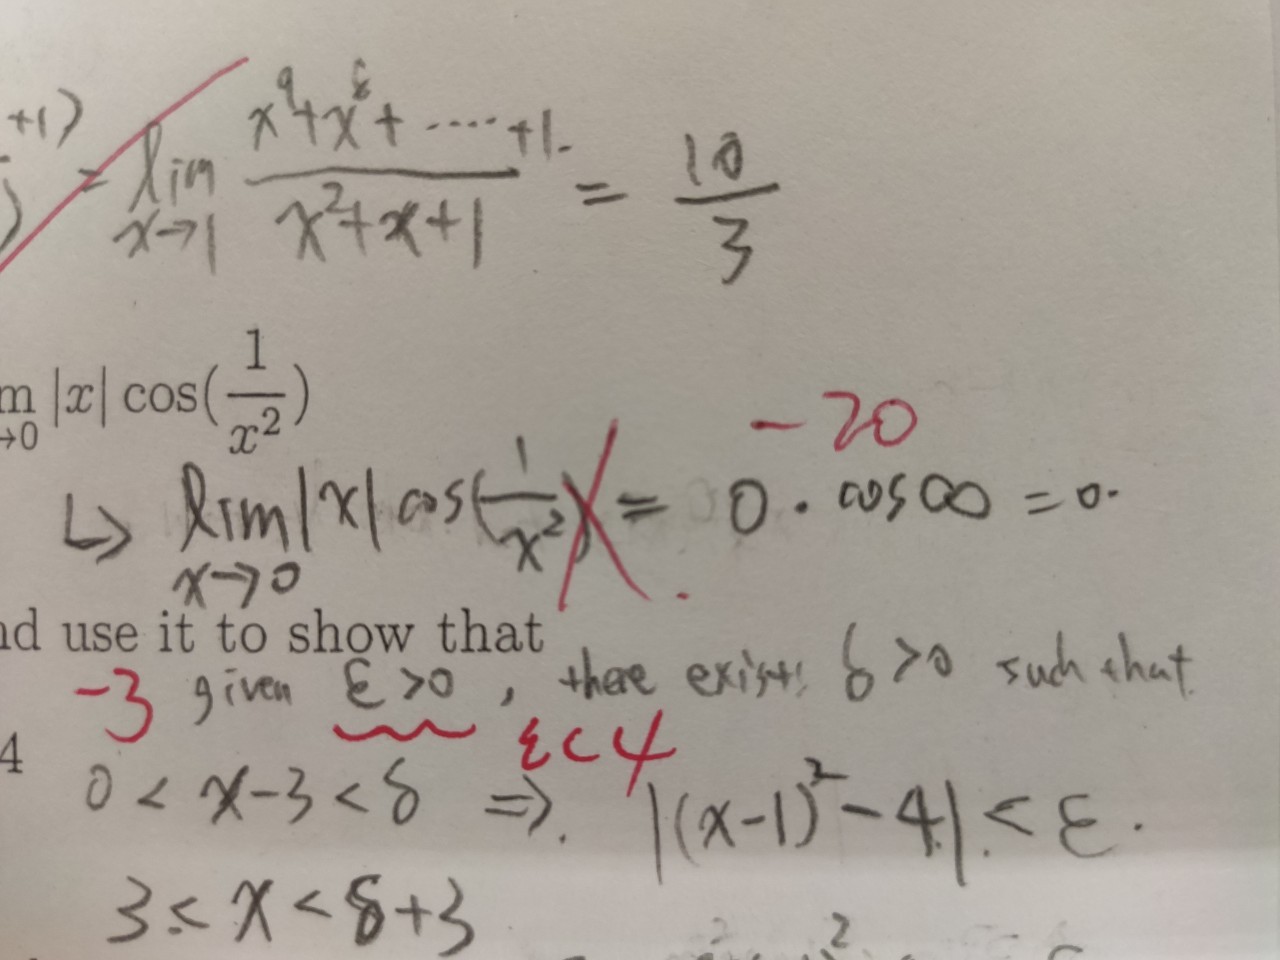 +1)
= lim x→1 (x^9+x^8+ ····· +1.)/(x^2+x+1) = 10/3
m →0 |x| cos(1/x^2)
-20
↳ lim x→0 |x| cos(1/x^2) = 0 · cos∞ = 0.
nd use it to show that
-3 given ε>0, there exists δ>0 such that
ε<4
4
0 < x-3 < δ ⇒. |(x-1)^2-4| < ε.
3 < x < δ+3
2